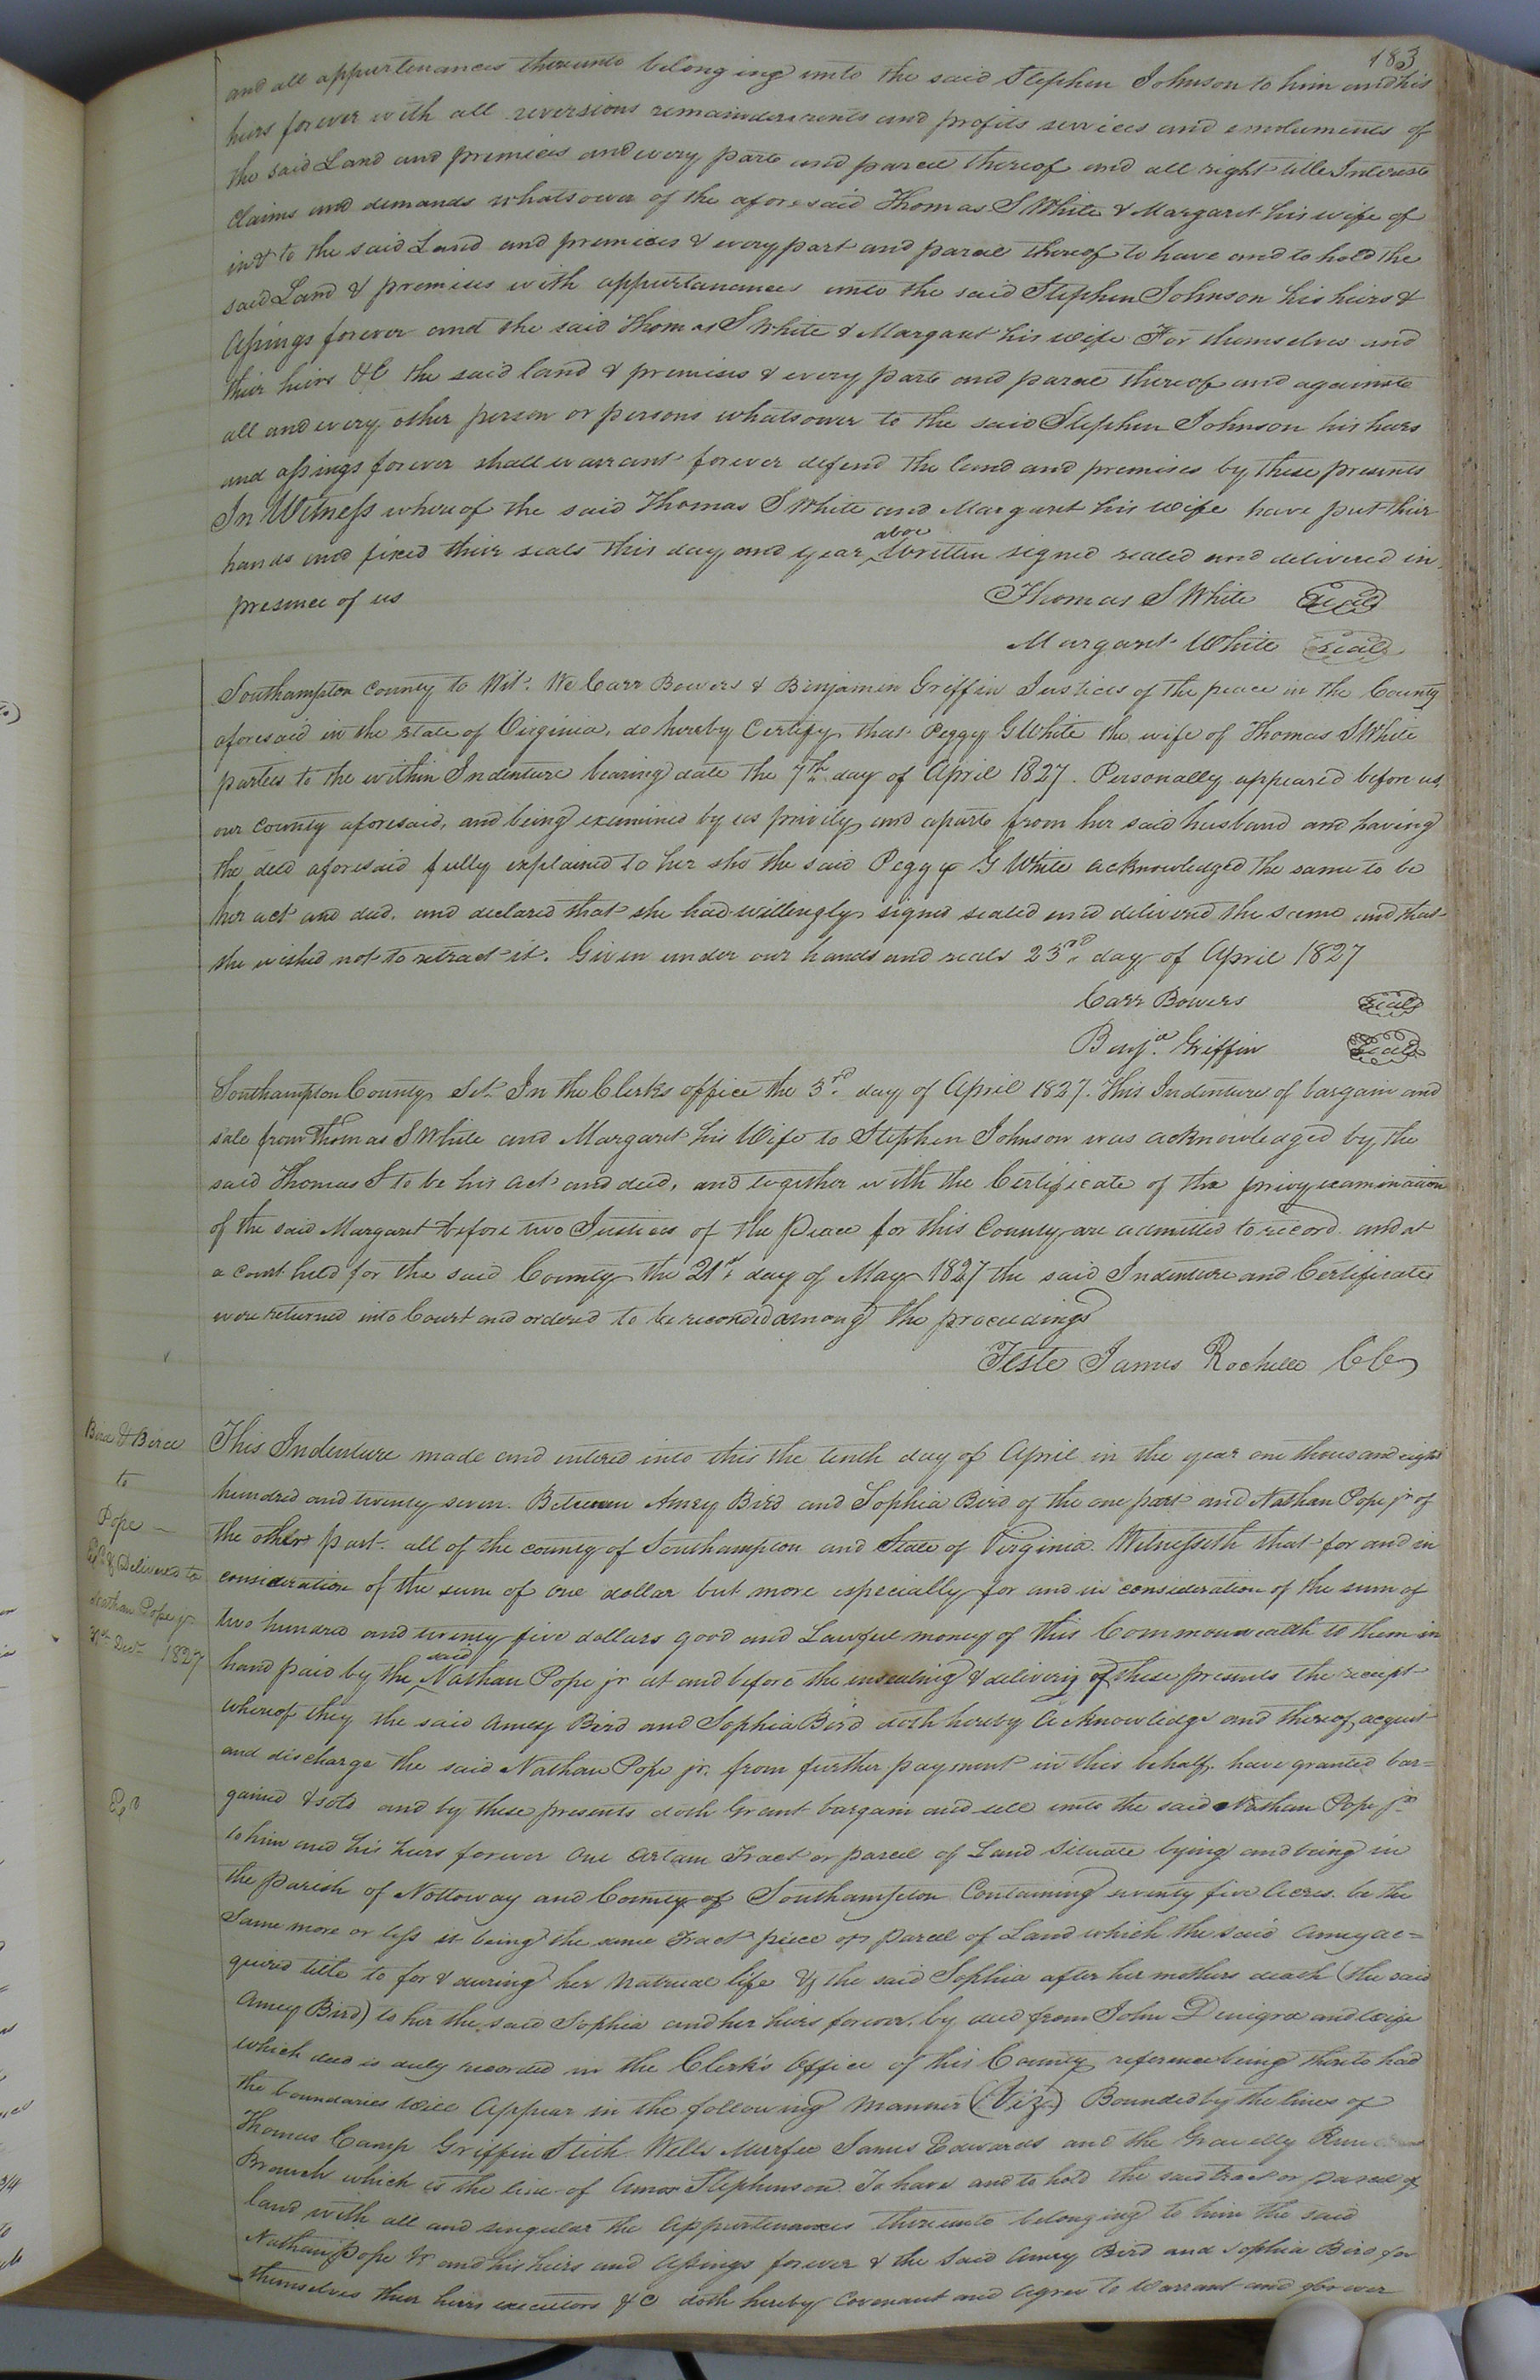 183
and all appurtenances thereunto belonging unto the said Stephen Johnson to him and his
heirs forever with all reversions remainders rents and profits services and emoluments of
the said Land and premises and every parte and parcel thereof and all right title Interest
claims and demands whatsoever of the aforesaid Thomas S White & Margaret his wife of
in & to the said Land and premises & every part and parcel thereof to have and to hold the
said Land & premises with appurtanances unto the said Stephen Johnson his heirs &
Assings forever and the said Thomas S White & Margaret his wife For themselves and
their heirs &C the said land & premises & every parte and parcel thereof and againste
all and every other person or persons whatsower to the said Stephen Johnson his heirs
and assings forever shall warrant forever defend the land and premises by these presents
In Witness whereof the said Thomas S White and Margaret his wife have put their
hands and fixed their seals this day and year above Written signed sealed and delivered in
presence of us Thomas S White Seal
Margaret White Seal
Southampton County to Wit. We Carr Bowers & Benjamin Griffin Justices of the peace in the County
aforesaid in the state of Virginia, do hereby Certify that Peggy G White the wife of Thomas S White
parties to the within Indenture bearing date the 7th day of April 1827. Personally appeared before us,
our County aforesaid, and being examined by us privily and aparte from her said husband and having
the deed aforesaid fully explained to her she the said Peggy G White acknowledged the same to be
her act and deed, and declared that she had willingly signed sealed and delivered the same and that
she wished not to retract it. Given under our hands and seals 23rd day of April 1827
Carr Bowers Seal
Benja. Griffin Seal
Southampton County Sct. In the Clerks office the 3rd day of April 1827. This Indenture of bargain and
sale from Thomas S White and Margaret his Wife to Stephen Johnson was acknowledged by the
said Thomas S to be his act and deed, and together with the Certificate of the privy examination
of the said Margaret before two Justices of the Peace for this County are admitted to record and at
a court held for the said County the 21st day of May 1827 the said Indenture and Certificate
were returned into Court and ordered to be recorded among the proceedings
Teste James Rochelle CC
Bird & Bird
to
Pope
Exd. & Delivered to
Nathan Pope jr
Decr 1827
Exd
This Indenture made and entered into this the tenth day of April in the year one thousand eight
hundred and twenty seven. Between Amey Bird and Sophia Bird of the one part and Nathan Pope jr of
the other part. all of the county of Southampton and State of Virginia. Witnesseth that for and in
consideration of the sum of one dollar but more especially for and in consideration of the sum of
two hundred and twenty five dollars good and Lawful money of this Commonwealth to them in
hand paid by the said Nathan Pope jr at and before the ensealing & delivering of these presents the receipt
whereof they the said Amey Bird and Sophia Bird doth hereby Acknowledge and thereof acquit
and discharge the said Nathan Pope jr. from further payment in this behalf. have granted bar=
gained & sold and by these presents doth Grant bargain and sell unto the said Nathan Pope jr
to him and his heirs forever One certain Tract or parcel of Land Situate lying and being in
the Parish of Nottoway and County of Southampton Containing seventy five Acres. be the
Same more or less it being the same Tract piece or parcel of Land which the said Amey ac=
quired title to for & during her natrual life & the said Sophia after her mothers death (the said
Amey Bird) to her the said Sophia and her heirs forever, by deed from John Denigre and wife
which deed is duly recorded in the Clerk's Office of this County reference being thereto had
the boundaries will Appear in the following Manner (Viz) Bounded by the lines of
Thomas Camp Griffin Stith Wells Murfee James Edwards and the Gravelly Run
Branch which is the line of Amos Stephenson. To have and to hold the said tract or parcel of
land with all and singular the Appurtenances thereunto belonging to him the said
Nathan Pope Jr and his heirs and Assings forever & the Said Amey Bird and Sophia Bird for
themselves their heirs executors &C doth hereby Covenant and Agree to Warrant and forever